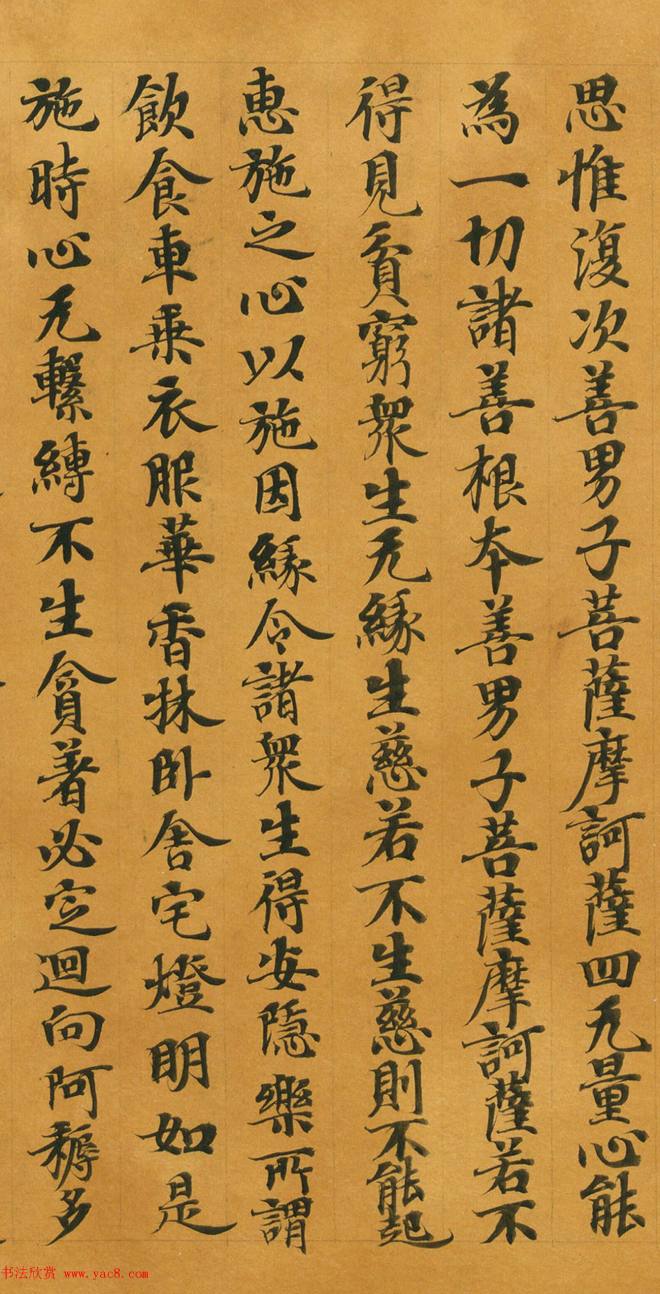 思惟復次善男子菩薩摩訶薩四无量心能
為一切諸善根本善男子菩薩摩訶薩若不
得見貧窮衆生无緣生慈若不生慈則不能起
惠施之心以施因緣令諸衆生得安隱樂所謂
飲食車乗衣服華香牀卧舍宅燈明如是
施時心无繫縛不生貪著必定迴向阿耨多
书法欣赏 www.yac8.com